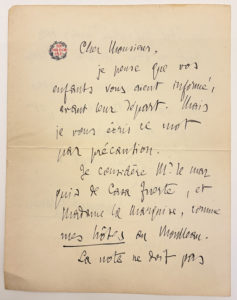 Cher Monsieur,
je pense que vos
enfants vous aient informé,
avant leur départ. Mais
je vous écris ce mot
par précaution.
Je considère Mr. le mar
quis de Casa Fuerte, et
Madame la Marquise, comme
mes hôtes au Moulleau.
La note ne doit pas